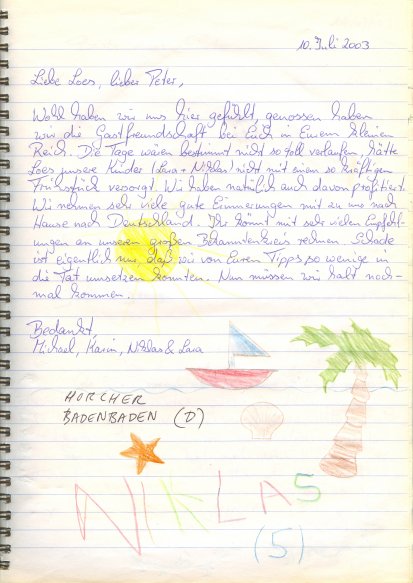 10. Juli 2003
Liebe Loes, lieber Peter,
Wohl haben wir uns hier gefühlt, genossen haben
wir die Gastfreundschaft bei Euch in Eurem kleinen
Reich. Die Tage wären bestimmt nicht so toll verlaufen, hätte
Loes unsere Kinder (Lara + Niklas) nicht mit einem so kräftigen
Frühstück versorgt. Wir haben natürlich auch davon profitiert.
Wir nehmen sehr viele gute Erinnerungen mit zu uns nach
Hause nach Deutschland. Ihr könnt mit sehr vielen Empfehl-
ungen an unseren großen Bekanntenkreis rechnen. Schade
ist eigentlich nur, daß wir von Euren Tipps so wenige in
die Tat umsetzen konnten. Nun müssen wir halt noch-
mal kommen.
Bedankt,
Michael, Karin, Niklas & Lara
HORCHER
BADENBADEN (D)
NIKLAS
(5)